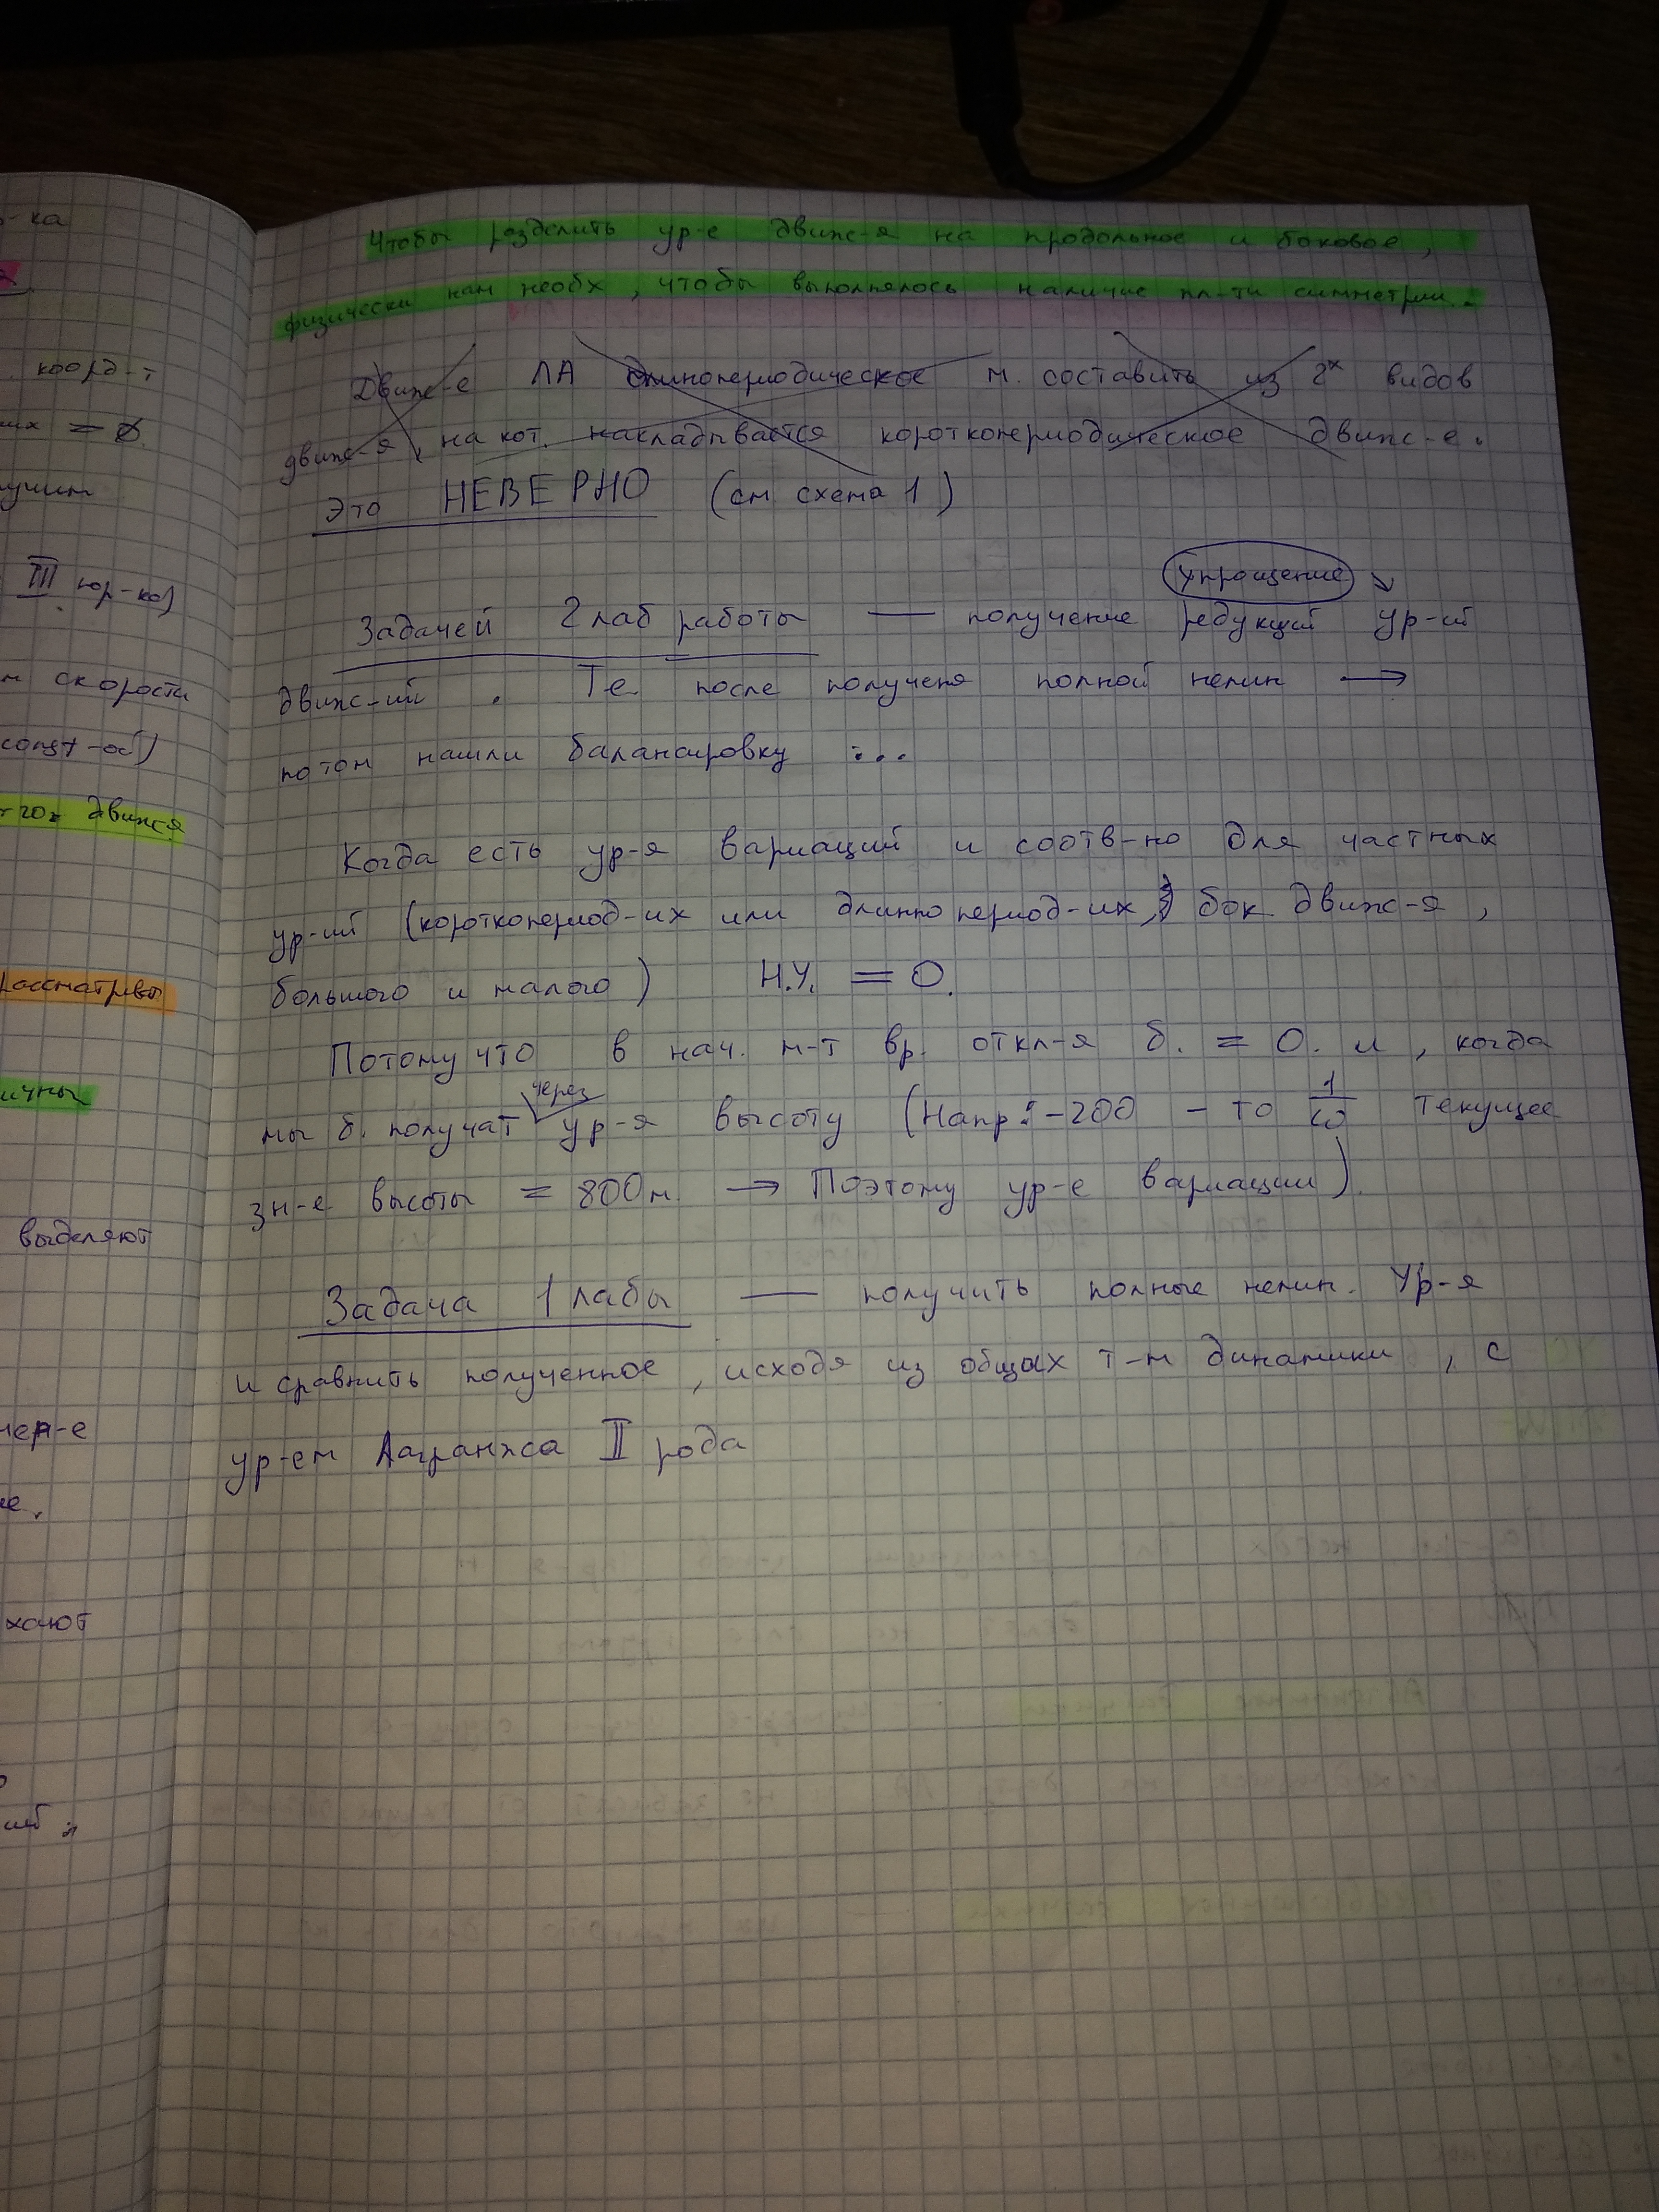 Чтобы разделить ур-е движ-я на продольное и боковое,
физически нам необх, чтобы выполнялось наличие пл-ти симметрии.
Движ-е ЛА длинопериодическое м. составить из 2х видов
движ-я, на кот. накладывается короткопериодическое движ-е.
Это НЕВЕРНО (см схема 1)
упрощение
Задачей 2 лаб работы — получение редукций ур-ий
движ-ий. Те после полученя полной нелин →
потом нашли балансировку ...
Когда есть ур-я вариаций и соотв-но для частных
ур-ий (короткопериод-их или длиннопериод-их, бок движ-я,
большого и малого) Н.У. = 0.
Потому что в нач. м-т вр. откл-я б. = 0. и, когда
через
мы б. получат ур-я высоту (Напр: -200 - то 1/ω текущее
зн-е высоты = 800м. → Поэтому ур-е вариации).
Задача 1 лабы — получить полные нелин. Ур-я
и сравнить полученное, исходя из общих т-м динамики, с
ур-ем Лагранжса II рода
-ка
коорд-т
их = 0.
учим
III пор-ка)
м скорости
const-ой)
движ-я
рассматривы
ичны
выделяют
хают